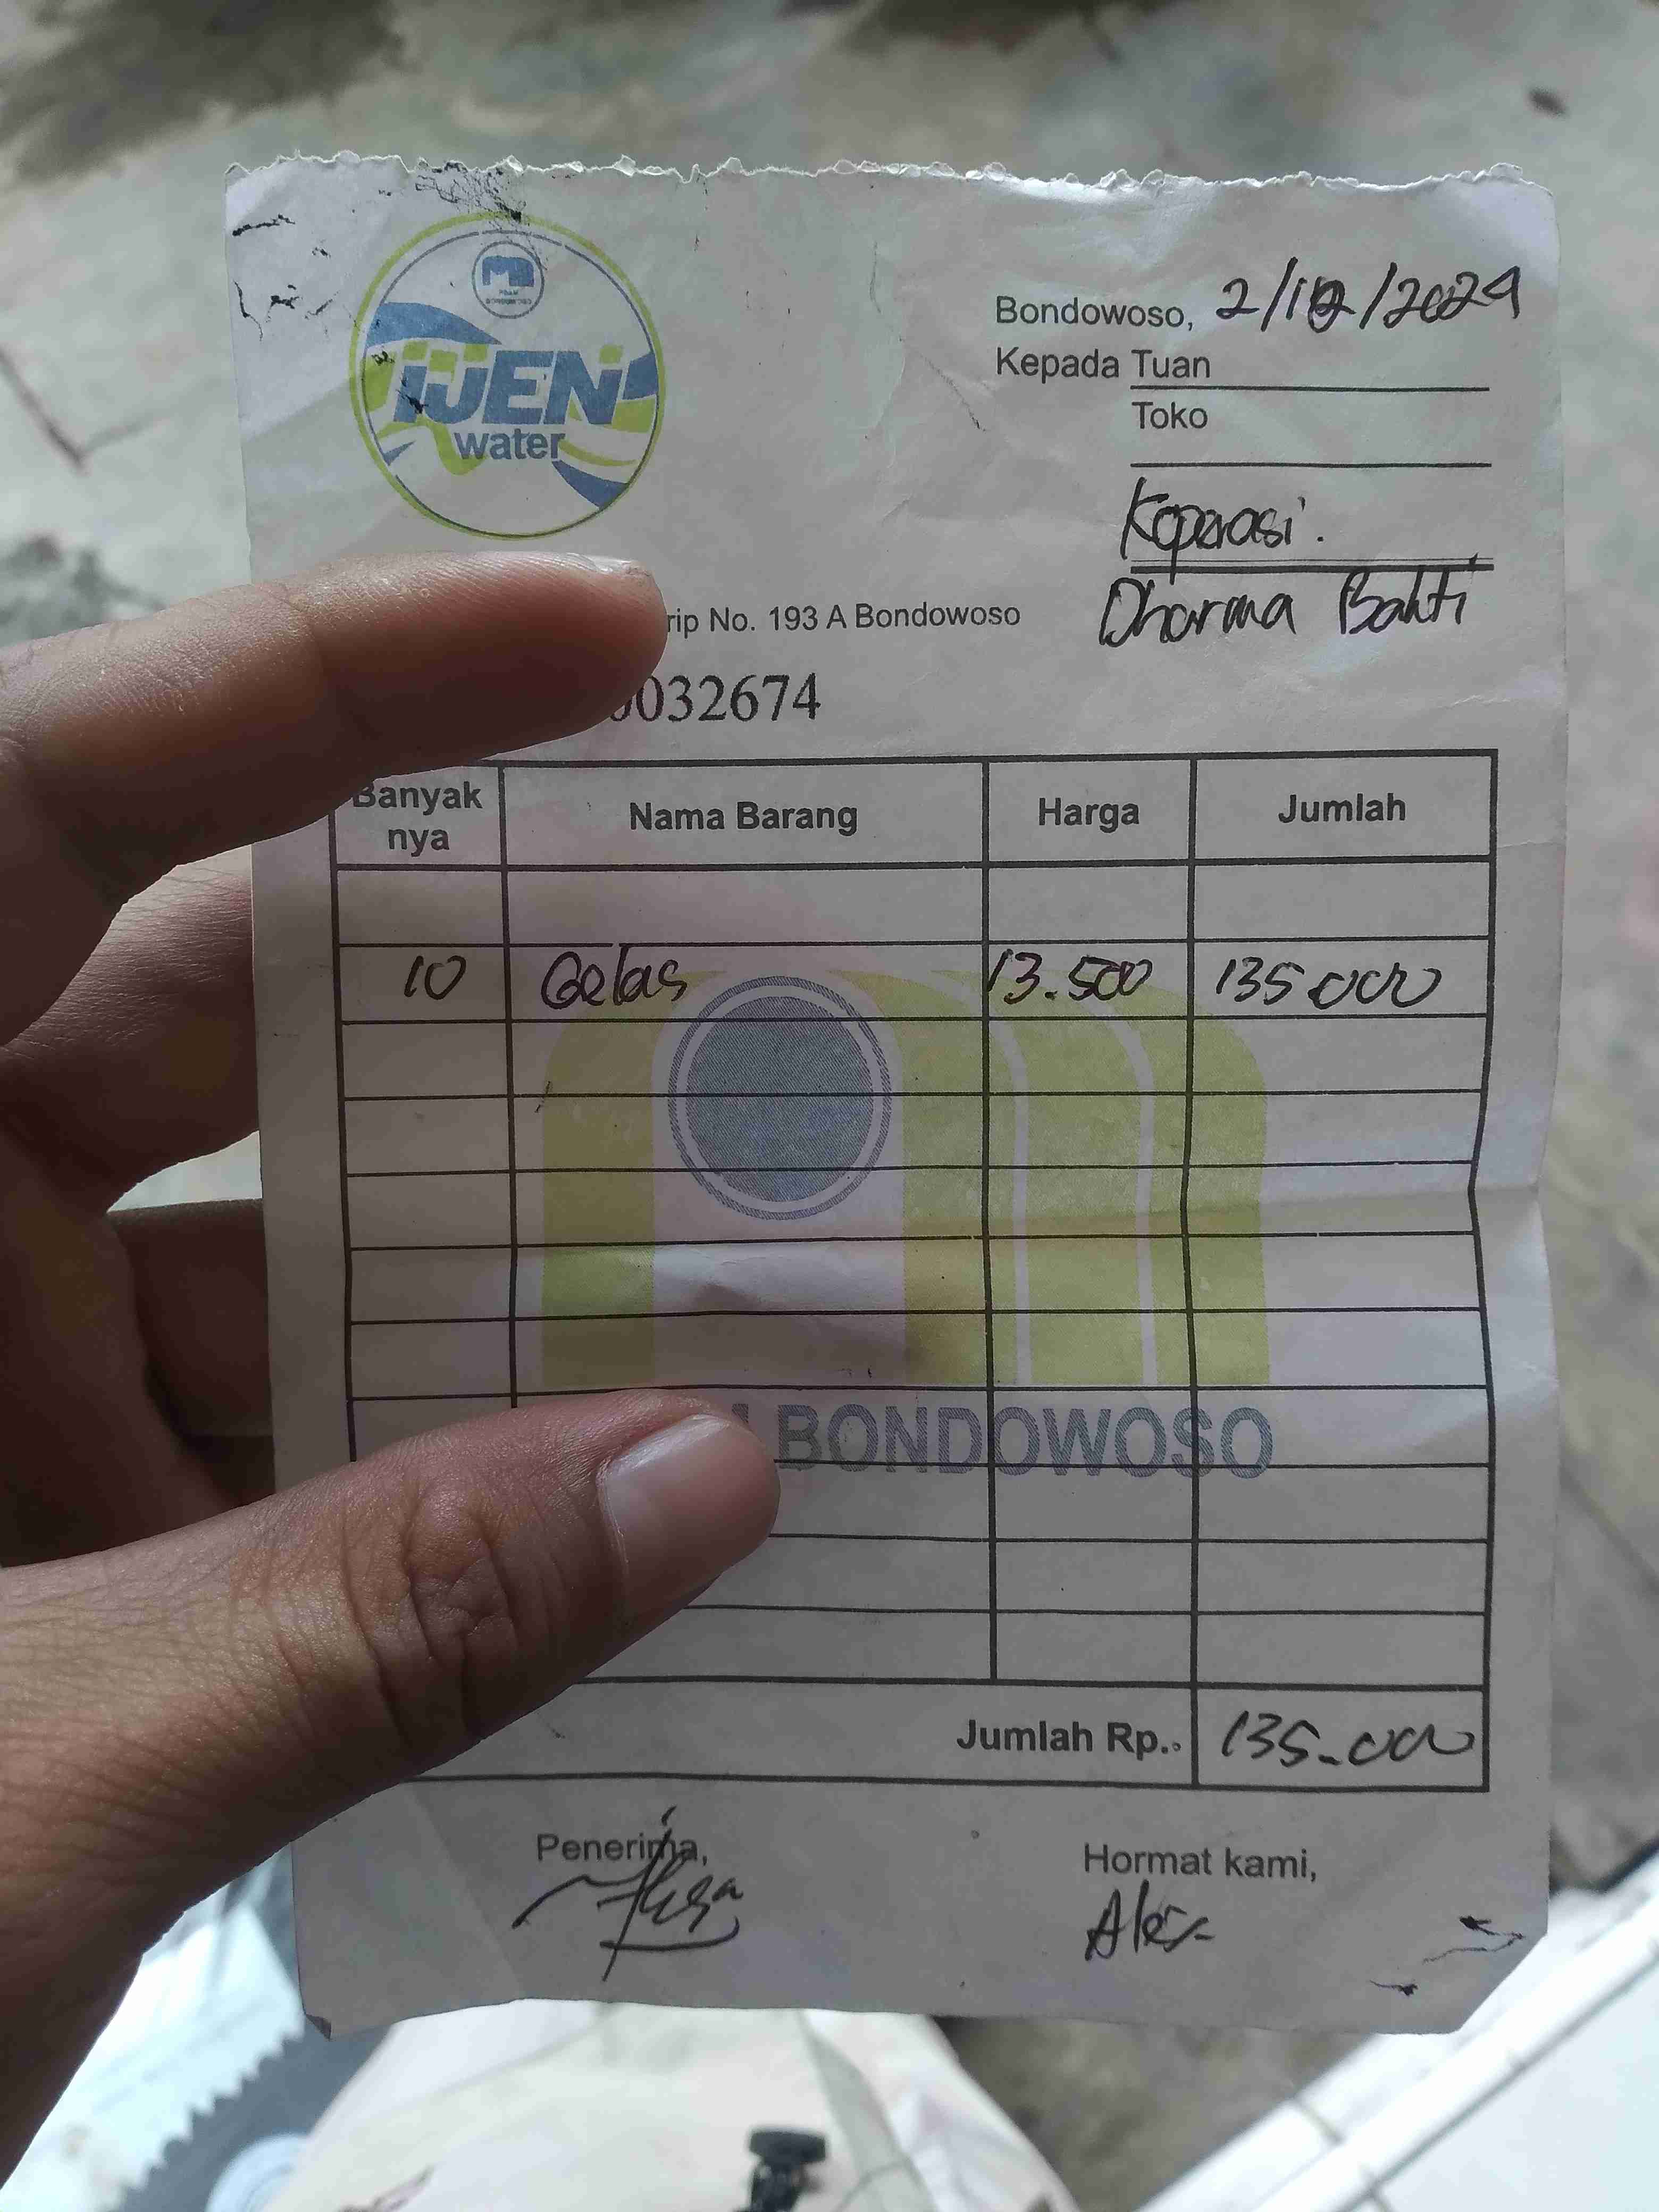 IJEN
water
Bondowoso, 2/12/2024
Kepada Tuan
Toko
Koperasi.
Dharma Bakti
rip No. 193 A Bondowoso
032674
Banyak nya Nama Barang Harga Jumlah
10 Gelas 13.500 135.000
BONDOWOSO
Jumlah Rp.. 135.000
Penerima, Hormat kami,
Alex